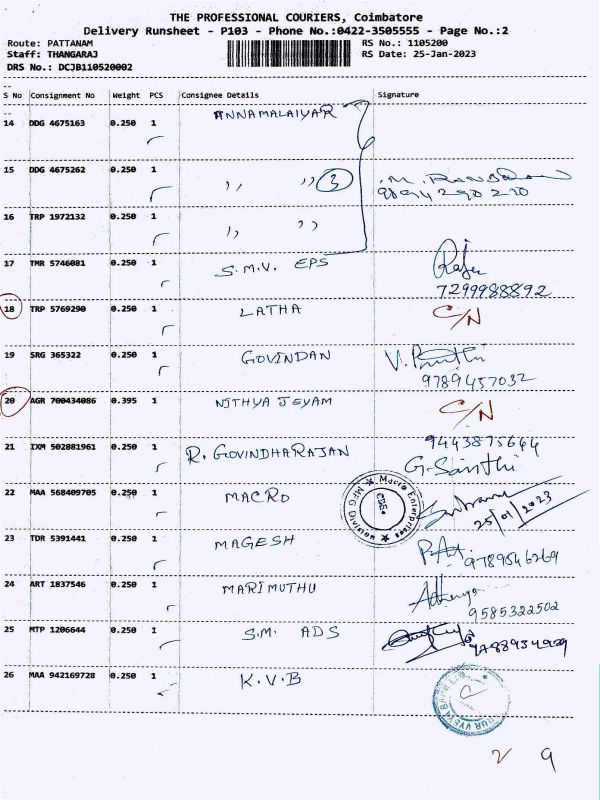 THE PROFESSIONAL COURIERS, Coimbatore
Delivery Runsheet - P103 - Phone No.:0422-3505555 - Page No.:2
Route: PATTANAM RS No.: 1105200
Staff: THANGARAJ RS Date: 25-Jan-2023
DRS No.: DCJB110520002
S No Consignment No Weight PCS Consignee Details Signature
14 DDG 4675163 0.250 1 ANNAMALAIYAR
15 DDG 4675262 0.250 1 ,, ,, 3
9894290210
16 TRP 1972132 0.250 1 ,, ,,
17 TMR 5746081 0.250 1 S.M.V. EPS Raja
7299988892
18 TRP 5769290 0.250 1 LATHA C/N
19 SRG 365322 0.250 1 GOVINDAN
9789457032
20 AGR 700434086 0.395 1 NITHYA JEYAM C/N
9443875644
21 IXM 502881961 0.250 1 R. GOVINDHARAJAN G. Santhi
22 MAA 568409705 0.250 1 MACRO
Macro Enterprises
MFG Division
CBE.
25/01/2023
23 TDR 5391441 0.250 1 MAGESH
9789546269
24 ART 1837546 0.250 1 MARIMUTHU
9585322502
25 MTP 1206644 0.250 1 S.M. ADS
26 MAA 942169728 0.250 1 K.V.B
2 9